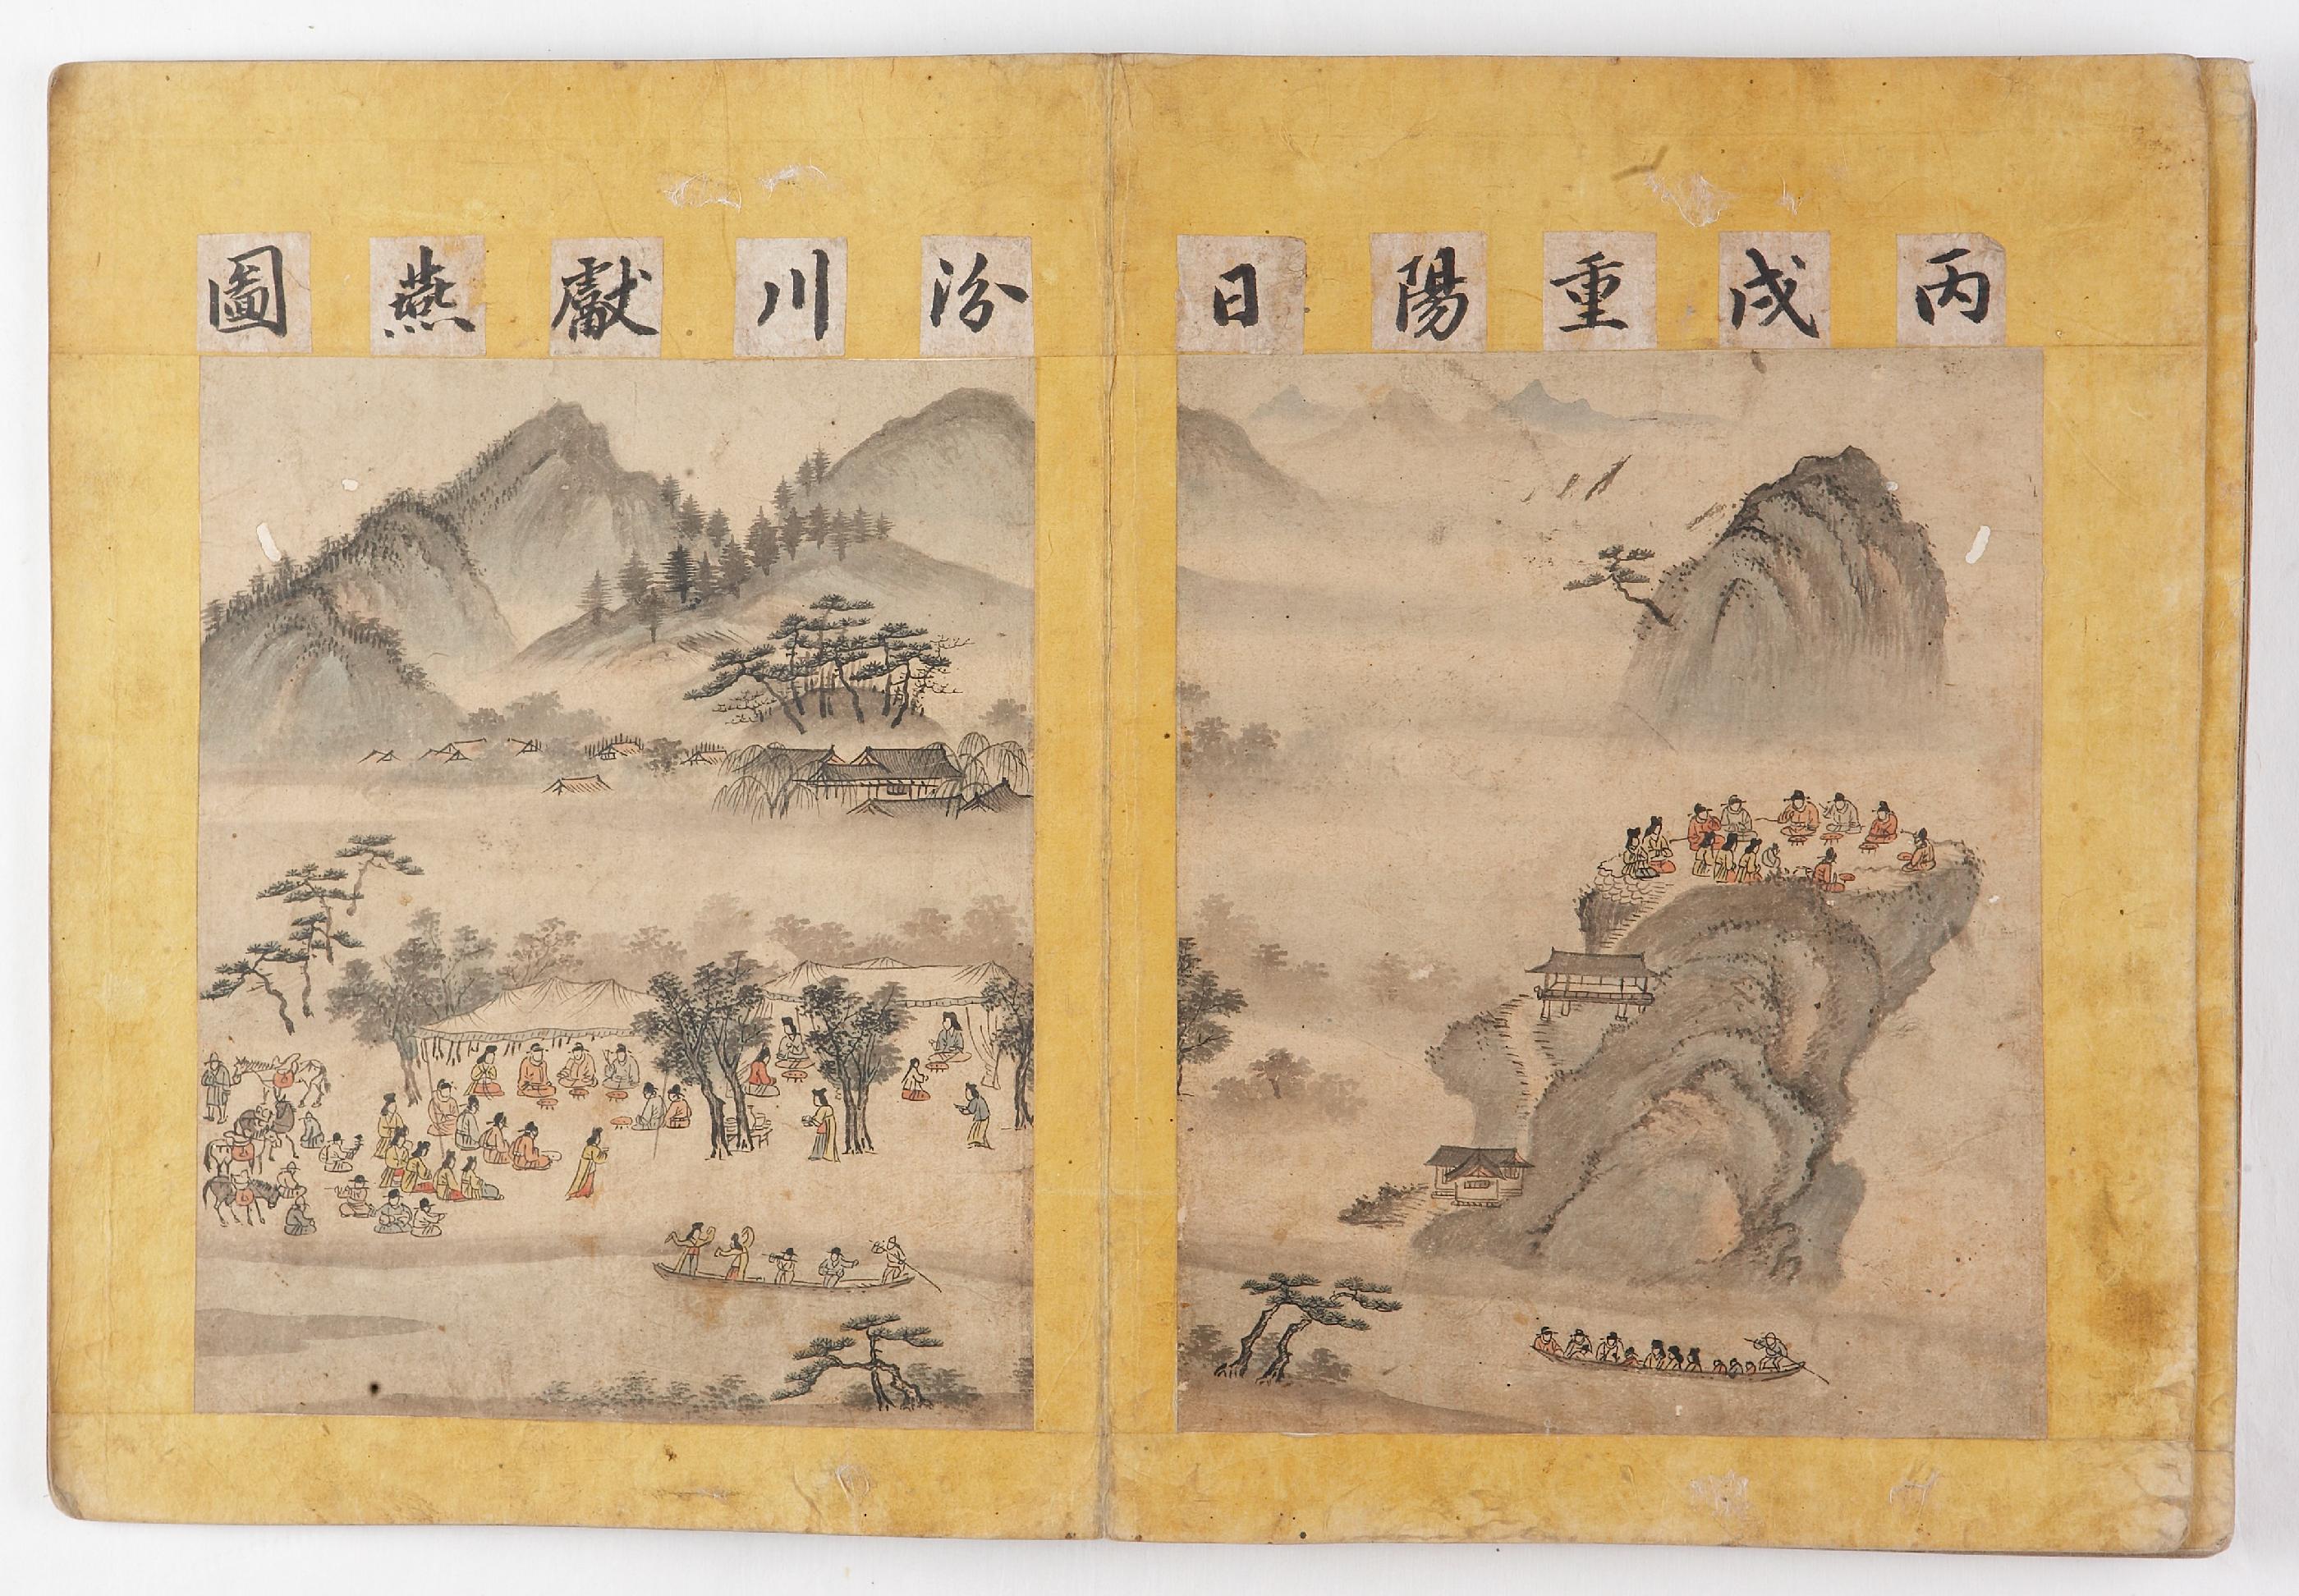 丙戌重陽日汾川獻燕圖